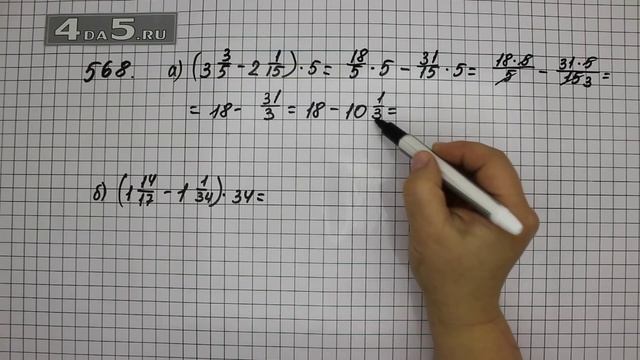 4DA5.RU
568. а) (3 3/5 - 2 1/15) · 5 = 18/5 · 5 - 31/15 · 5 = 18·5/5 - 31·5/15 3 =
= 18 - 31/3 = 18 - 10 1/3 =
б) (1 14/17 - 1 1/34) · 34 =